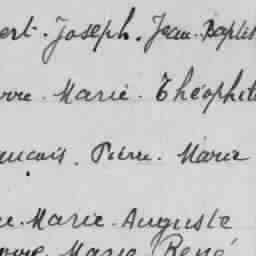 ert. Joseph. Jean. Baptis
rre. Marie. Théophil
ançois. Pierre. Marie
e. Marie. Auguste
rre. Marie. René